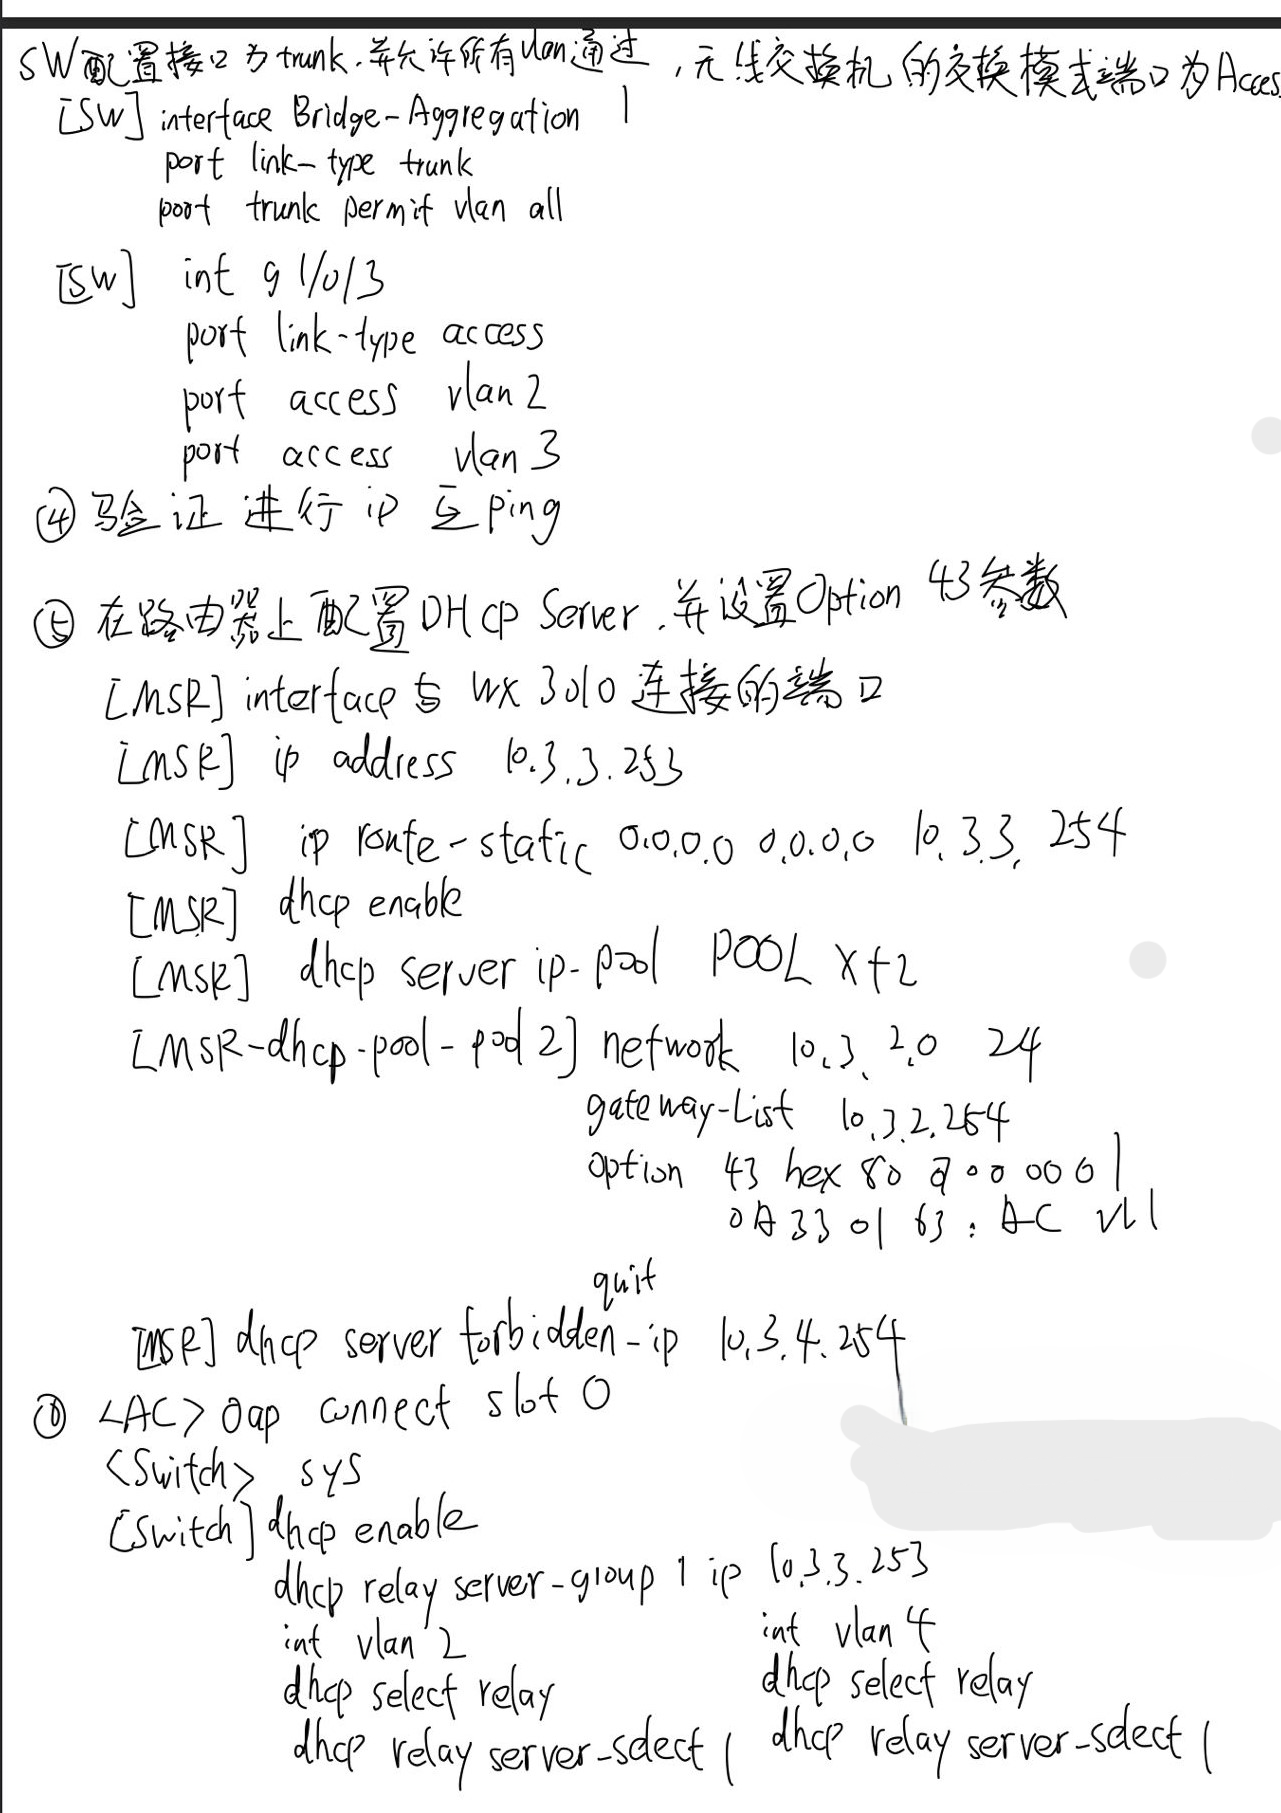 SW配置接口为trunk.并允许所有vlan通过,无线交换机的交换模式端口为Acces
[SW] interface Bridge-Aggregation 1
port link-type trunk
port trunk permit vlan all
[SW] int g 1/0/3
port link-type access
port access vlan 2
port access vlan 3
④验证 进行 ip 互ping
⑤在路由器上配置DHcp Server.并设置Option 43参数
[MSR] interface与 WX 3010 连接的端口
[MSR] ip address 10.3.3.253
[MSR] ip route-static 0.0.0.0 0.0.0.0 10.3.3.254
[MSR] dhcp enable
[MSR] dhcp server ip-pool POOL X+2
[MSR-dhcp-pool-pool 2] network 10.3.2.0 24
gateway-List 10.3.2.254
option 43 hex 80 00 00 01
0A 33 01 63: AC
quit
[MSR] dhcp server forbidden-ip 10.3.4.254
<AC> oap connect slot 0
<Switch> sys
[Switch] dhcp enable
dhcp relay server-group 1 ip 10.3.3.253
int vlan 2 int vlan 4
dhcp select relay dhcp select relay
dhcp relay server-select 1 dhcp relay server-select 1